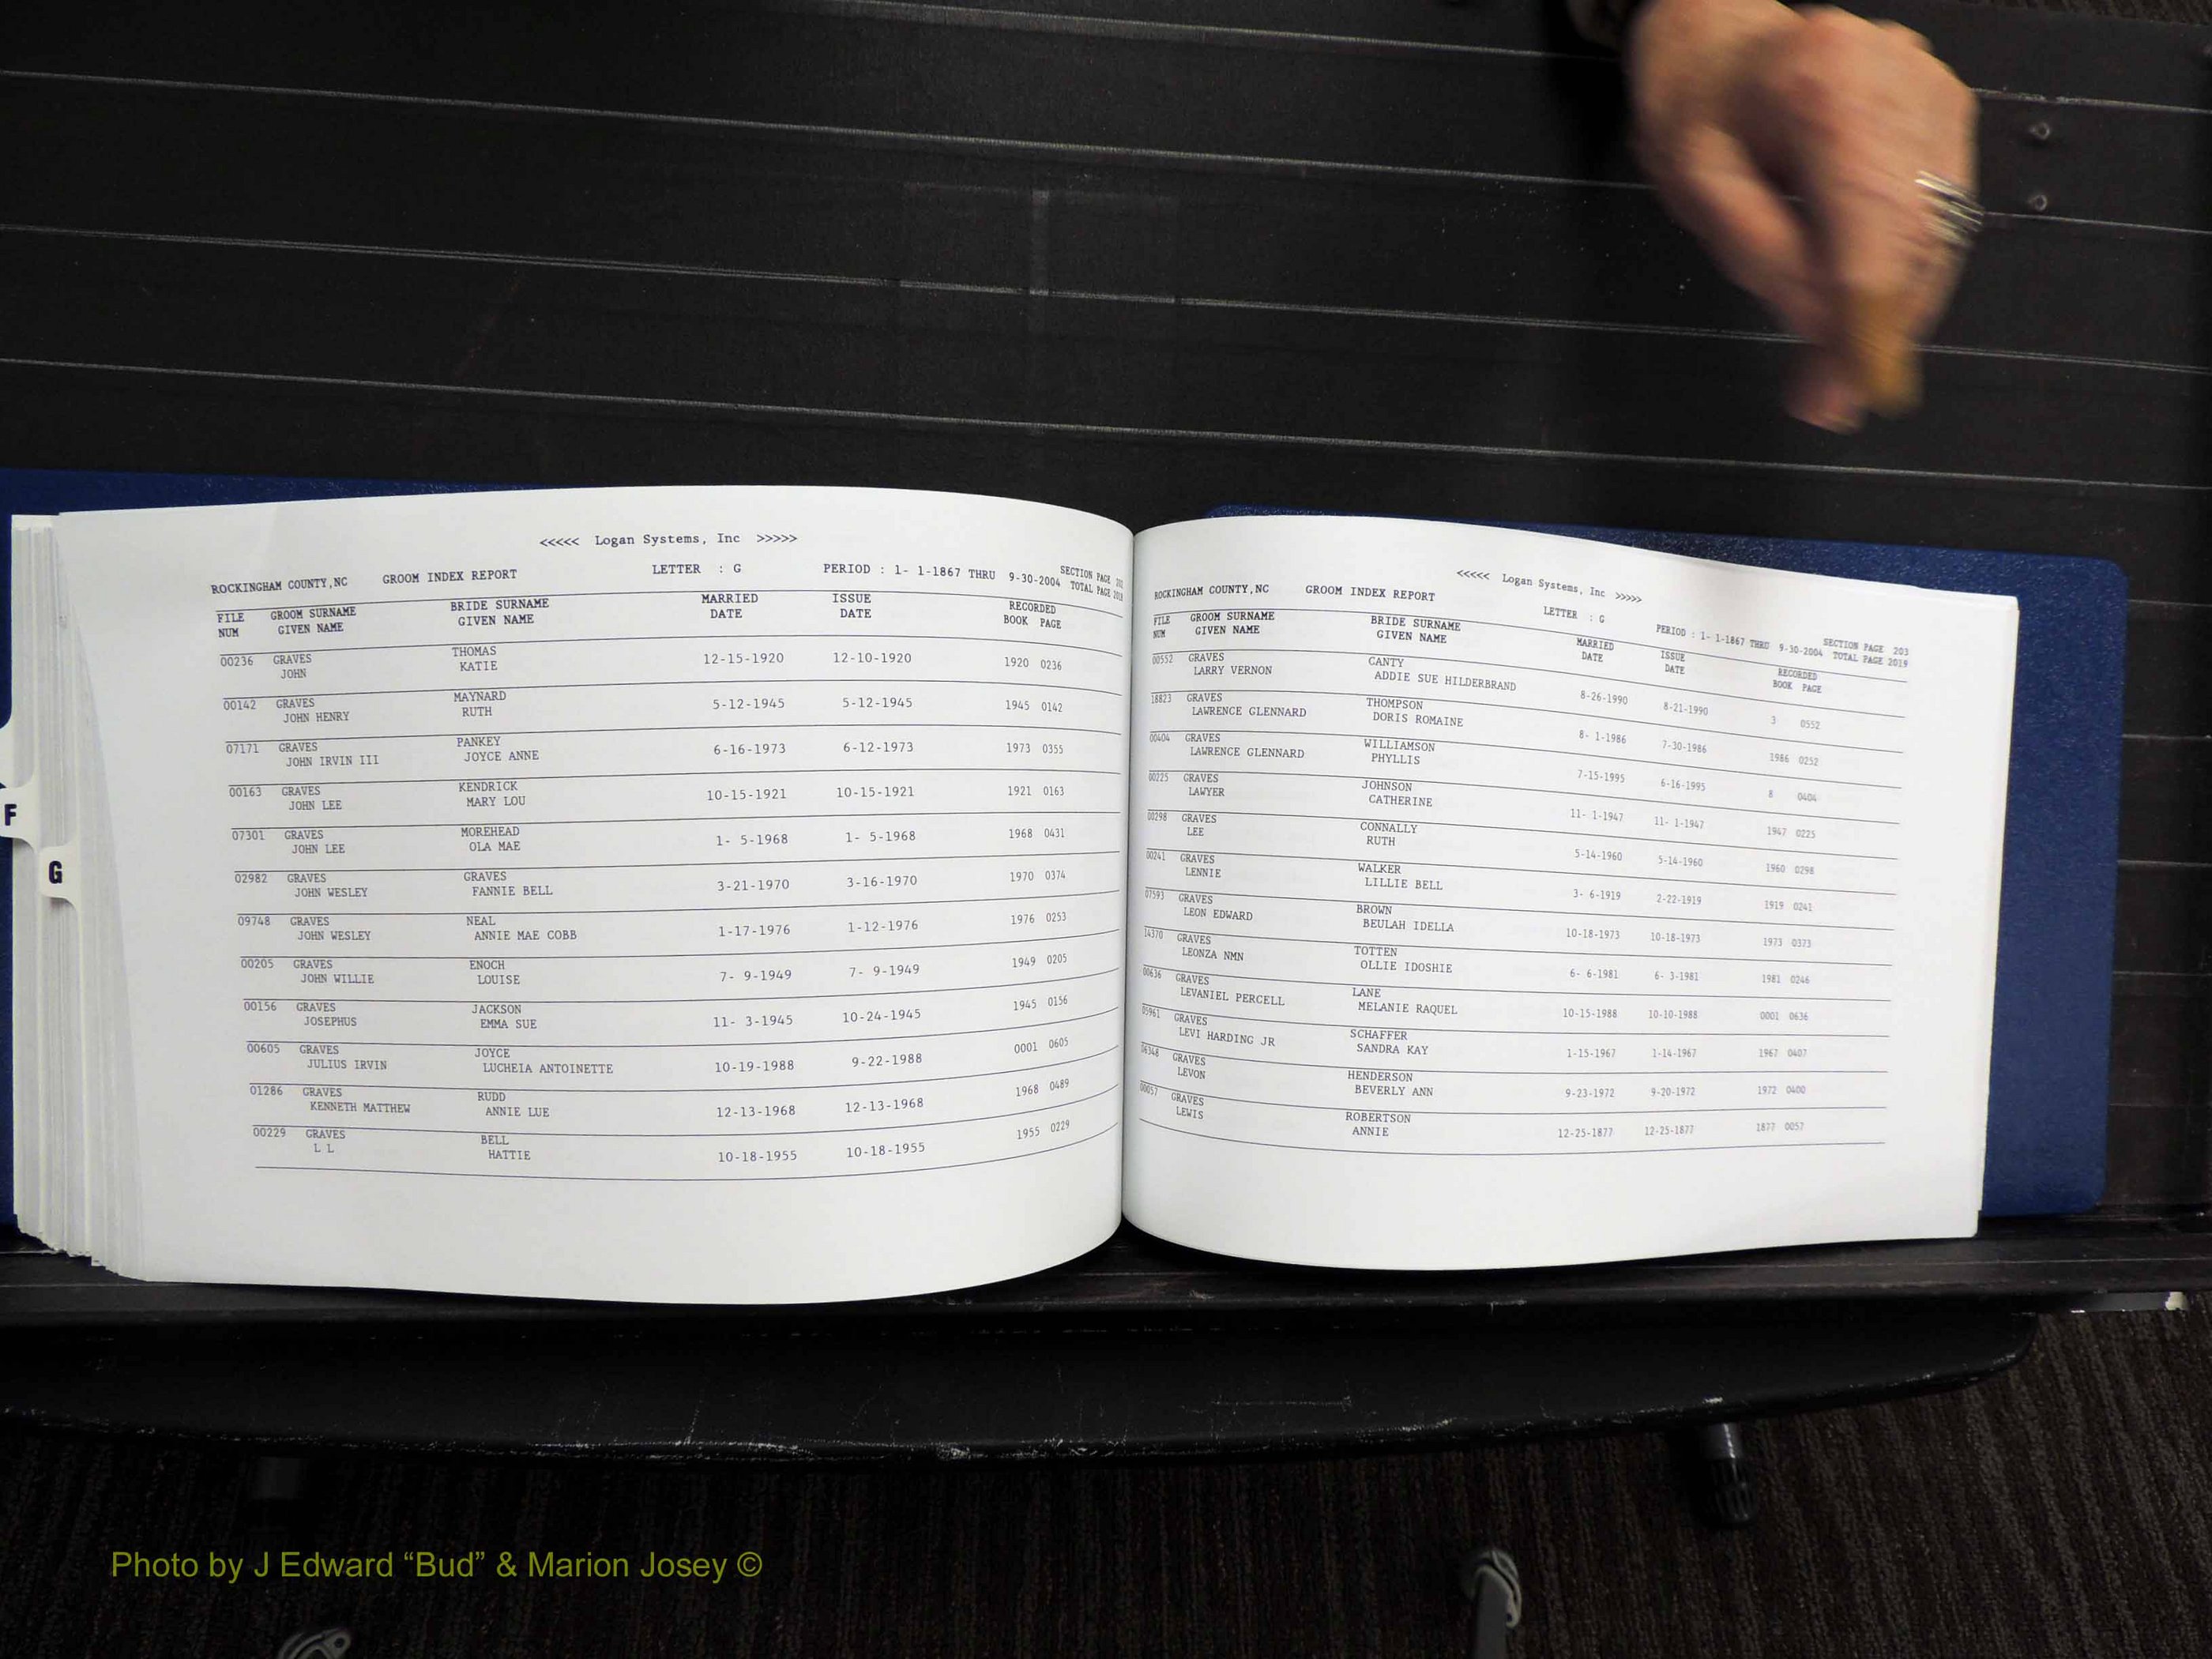 <<<<< Logan Systems, Inc >>>>>
ROCKINGHAM COUNTY,NC GROOM INDEX REPORT LETTER : G PERIOD : 1- 1-1867 THRU 9-30-2004 SECTION PAGE
TOTAL PAGE
FILE GROOM SURNAME BRIDE SURNAME MARRIED ISSUE RECORDED
NUM GIVEN NAME GIVEN NAME DATE DATE BOOK PAGE
00236 GRAVES THOMAS 12-15-1920 12-10-1920 1920 0236
JOHN KATIE
00142 GRAVES MAYNARD 5-12-1945 5-12-1945 1945 0142
JOHN HENRY RUTH
07171 GRAVES PANKEY 6-16-1973 6-12-1973 1973 0355
JOHN IRVIN III JOYCE ANNE
00163 GRAVES KENDRICK 10-15-1921 10-15-1921 1921 0163
JOHN LEE MARY LOU
07301 GRAVES MOREHEAD 1- 5-1968 1- 5-1968 1968 0431
JOHN LEE OLA MAE
02982 GRAVES GRAVES 3-21-1970 3-16-1970 1970 0374
JOHN WESLEY FANNIE BELL
09748 GRAVES NEAL 1-17-1976 1-12-1976 1976 0253
JOHN WESLEY ANNIE MAE COBB
00205 GRAVES ENOCH 7- 9-1949 7- 9-1949 1949 0205
JOHN WILLIE LOUISE
00156 GRAVES JACKSON 11- 3-1945 10-24-1945 1945 0156
JOSEPHUS EMMA SUE
00605 GRAVES JOYCE 10-19-1988 9-22-1988 0001 0605
JULIUS IRVIN LUCHEIA ANTOINETTE
01286 GRAVES RUDD 12-13-1968 12-13-1968 1968 0489
KENNETH MATTHEW ANNIE LUE
00229 GRAVES BELL 10-18-1955 10-18-1955 1955 0229
L L HATTIE
F
G
<<<<< Logan Systems, Inc >>>>>
ROCKINGHAM COUNTY,NC GROOM INDEX REPORT LETTER : G PERIOD : 1- 1-1867 THRU 9-30-2004 SECTION PAGE 203
TOTAL PAGE 2019
FILE GROOM SURNAME BRIDE SURNAME MARRIED ISSUE RECORDED
NUM GIVEN NAME GIVEN NAME DATE DATE BOOK PAGE
00552 GRAVES CANTY 8-26-1990 8-21-1990 3 0552
LARRY VERNON ADDIE SUE HILDERBRAND
18823 GRAVES THOMPSON 8- 1-1986 7-30-1986 1986 0252
LAWRENCE GLENNARD DORIS ROMAINE
00404 GRAVES WILLIAMSON 7-15-1995 6-16-1995 8 0404
LAWRENCE GLENNARD PHYLLIS
00225 GRAVES JOHNSON 11- 1-1947 11- 1-1947 1947 0225
LAWYER CATHERINE
00298 GRAVES CONNALLY 5-14-1960 5-14-1960 1960 0298
LEE RUTH
00241 GRAVES WALKER 3- 6-1919 2-22-1919 1919 0241
LENNIE LILLIE BELL
07593 GRAVES BROWN 10-18-1973 10-18-1973 1973 0373
LEON EDWARD BEULAH IDELLA
14370 GRAVES TOTTEN 6- 6-1981 6- 3-1981 1981 0246
LEONZA NMN OLLIE IDOSHIE
00636 GRAVES LANE 10-15-1988 10-10-1988 0001 0636
LEVANIEL PERCELL MELANIE RAQUEL
05961 GRAVES SCHAFFER 1-15-1967 1-14-1967 1967 0407
LEVI HARDING JR SANDRA KAY
06348 GRAVES HENDERSON 9-23-1972 9-20-1972 1972 0400
LEVON BEVERLY ANN
00057 GRAVES ROBERTSON 12-25-1877 12-25-1877 1877 0057
LEWIS ANNIE
Photo by J Edward “Bud” & Marion Josey ©